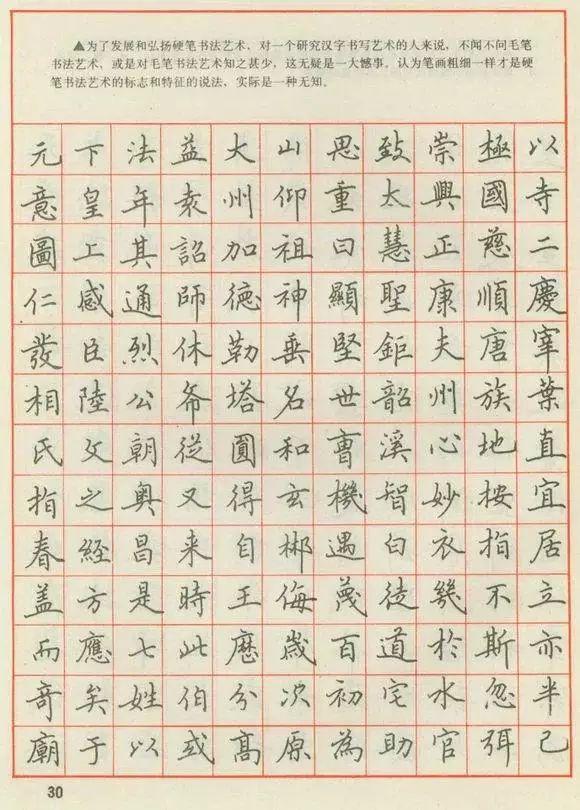 ▲为了发展和弘扬硬笔书法艺术，对一个研究汉字书写艺术的人来说，不闻不问毛笔
书法艺术，或是对毛笔书法艺术知之甚少，这无疑是一大憾事。认为笔画粗细一样才是硬
笔书法艺术的标志和特征的说法，实际是一种无知。
元下法益大山思致崇極以
意皇年袁州仰重太興國寺
圖上其詔加祖曰慧正慈二
仁感通師德神顯聖康順慶
發臣烈休勒垂堅鉅夫唐宰
相陸公塔名世韶州族葉
氏朝從圓和曹溪心地直
指之奥又得玄機智妙按宜
春經昌来自郴遇白衣指居
盖方是時王侮蔑徒幾不立
而應七此歷歲百道於斯亦
奇矣姓伯分次初宅水忽半
廟于以或高原為助官弭已
30